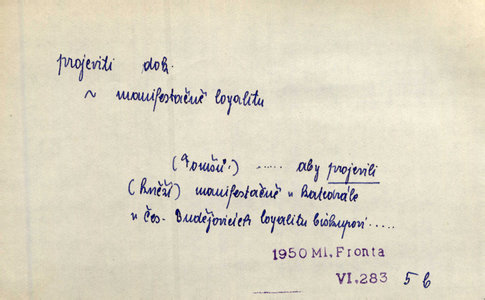 projeviti dok.
~ manifestačně loyalitu
(Tomšů.) ..... aby projevili
(kněží) manifestačně v katedrále
v Čes. Budějovicích loyalitu biskupovi .....
1950 Ml. Fronta
VI.283 5 b